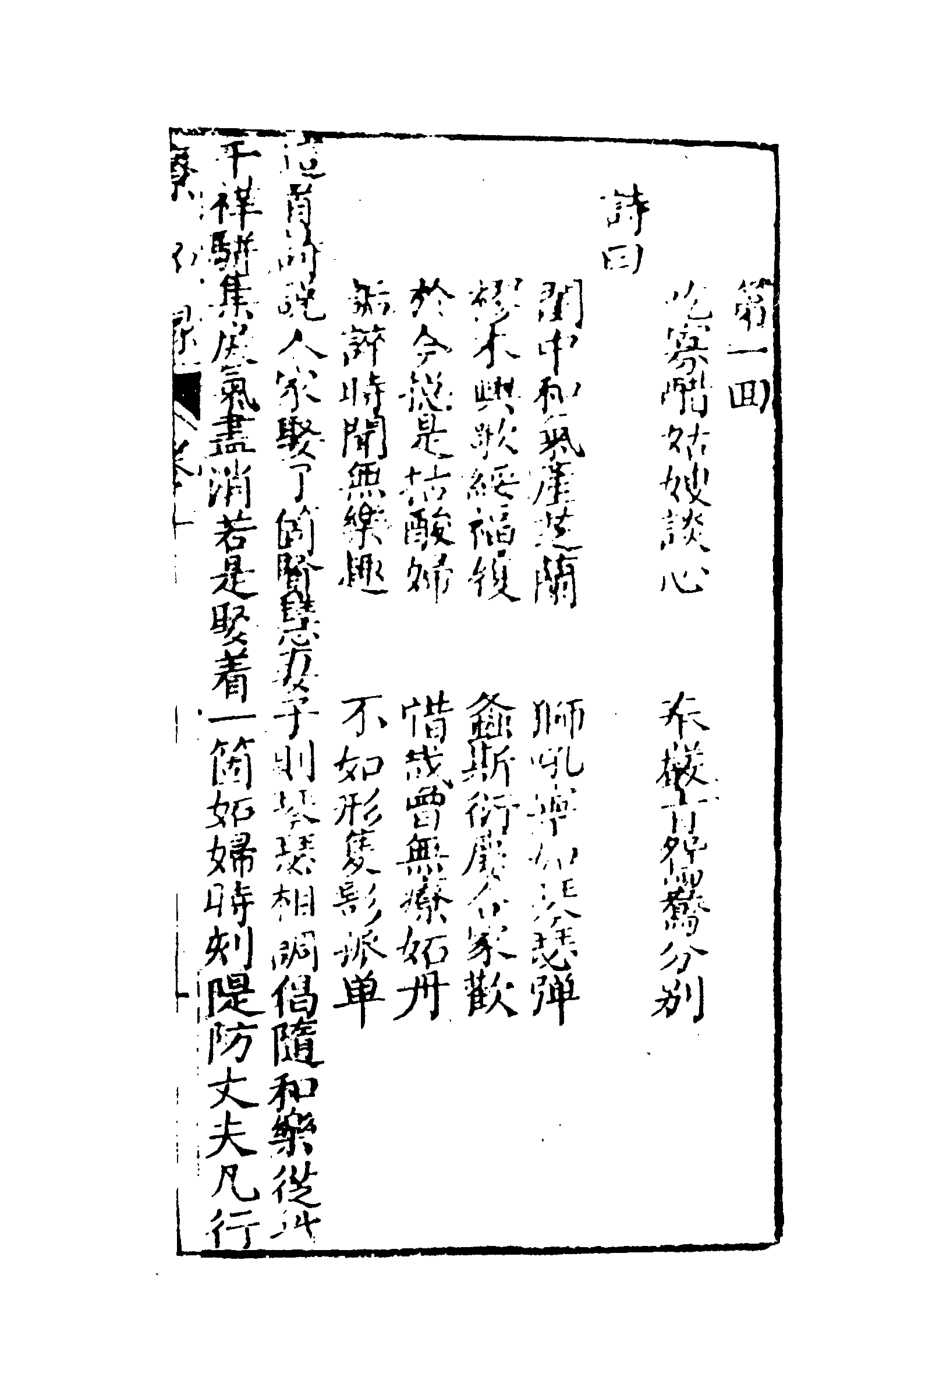 第一回
吃寡醋姑嫂談心　奉嚴首鴛鴦分別
詩曰
閨中和氣產芝蘭　獅吼寧如琴瑟弹
樛木興歌綏福履　螽斯衍慶合家歡
於今總是拈酸婦　惜哉曾無療妬丹
詬誶時聞無樂趣　不如形隻影孤单
這首詩說人家娶了箇賢慧妻子則琴瑟相調倡隨和樂從此
千祥駢集戾氣盡消若是娶着一箇妬婦時刻隄防丈夫凡行
卷一